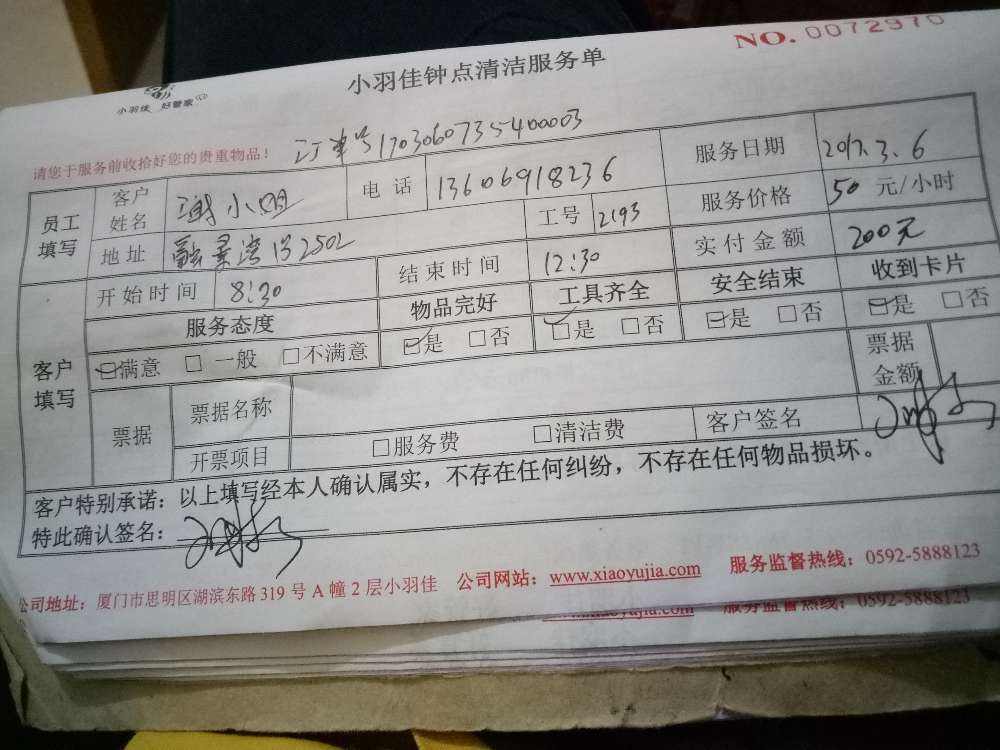 NO. 0072970
小羽佳钟点清洁服务单
小羽佳 好管家
请您于服务前收拾好您的贵重物品! 订单号170306073540003
员工填写 客户姓名 谢小姐 电话 13606918236 服务日期 2017.3.6
地址 融景湾 2502 工号 2193 服务价格 50 元/小时
客户填写 开始时间 8:30 结束时间 12:30 实付金额 200元
服务态度 物品完好 工具齐全 安全结束 收到卡片
满意 一般 不满意 是 否 是 否 是 否 是 否
票据 票据名称 票据金额
开票项目 服务费 清洁费 客户签名
客户特别承诺:以上填写经本人确认属实,不存在任何纠纷,不存在任何物品损坏。
特此确认签名:
公司地址:厦门市思明区湖滨东路 319 号 A 幢 2 层小羽佳 公司网站:www.xiaoyujia.com 服务监督热线:0592-5888123
www.xiaoyujia.com 服务监督热线:0592-5888123